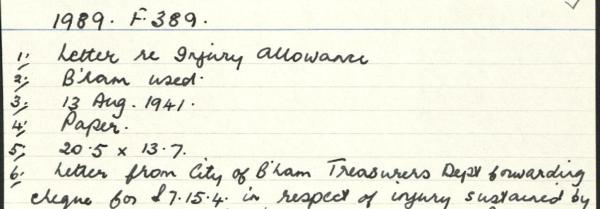 1989. F.389.
1; Letter re Injury Allowance
2; B'ham used.
3; 13 Aug. 1941.
4; Paper.
5; 20.5 x 13.7.
6; Letter from City of B'ham Treasurers Dept forwarding
cheque for £7.15.4. in respect of injury sustained by